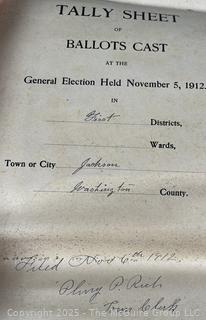 TALLY SHEET
OF
BALLOTS CAST
AT THE
General Election Held November 5, 1912.
IN
First Districts,
Wards,
Town or City Jackson
Washington County.
Filed Nov 6th 1912.
Pliny P. Rich
Town Clerk
Copyright 2025 - DowntownTrader.com